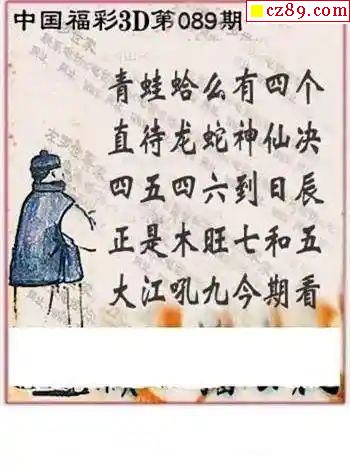 cz89.com
中国福彩3D第089期
青蛙蛤么有四个
直待龙蛇神仙决
四五四六到日辰
正是木旺七和五
大江吼九今期看